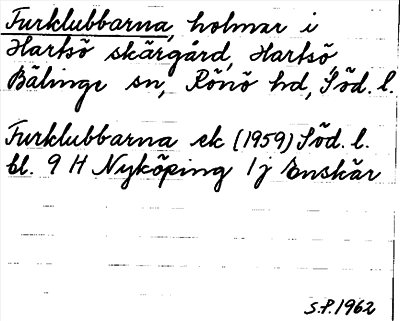 Furklubbarna, holmar i
Hartsö skärgård, Hartsö,
Bälinge sn, Rönö hd, Söd. l.
Furklubbarna ek (1959) Söd. l.
bl. 9 H Nyköping 1 j Enskär
S.P. 1962